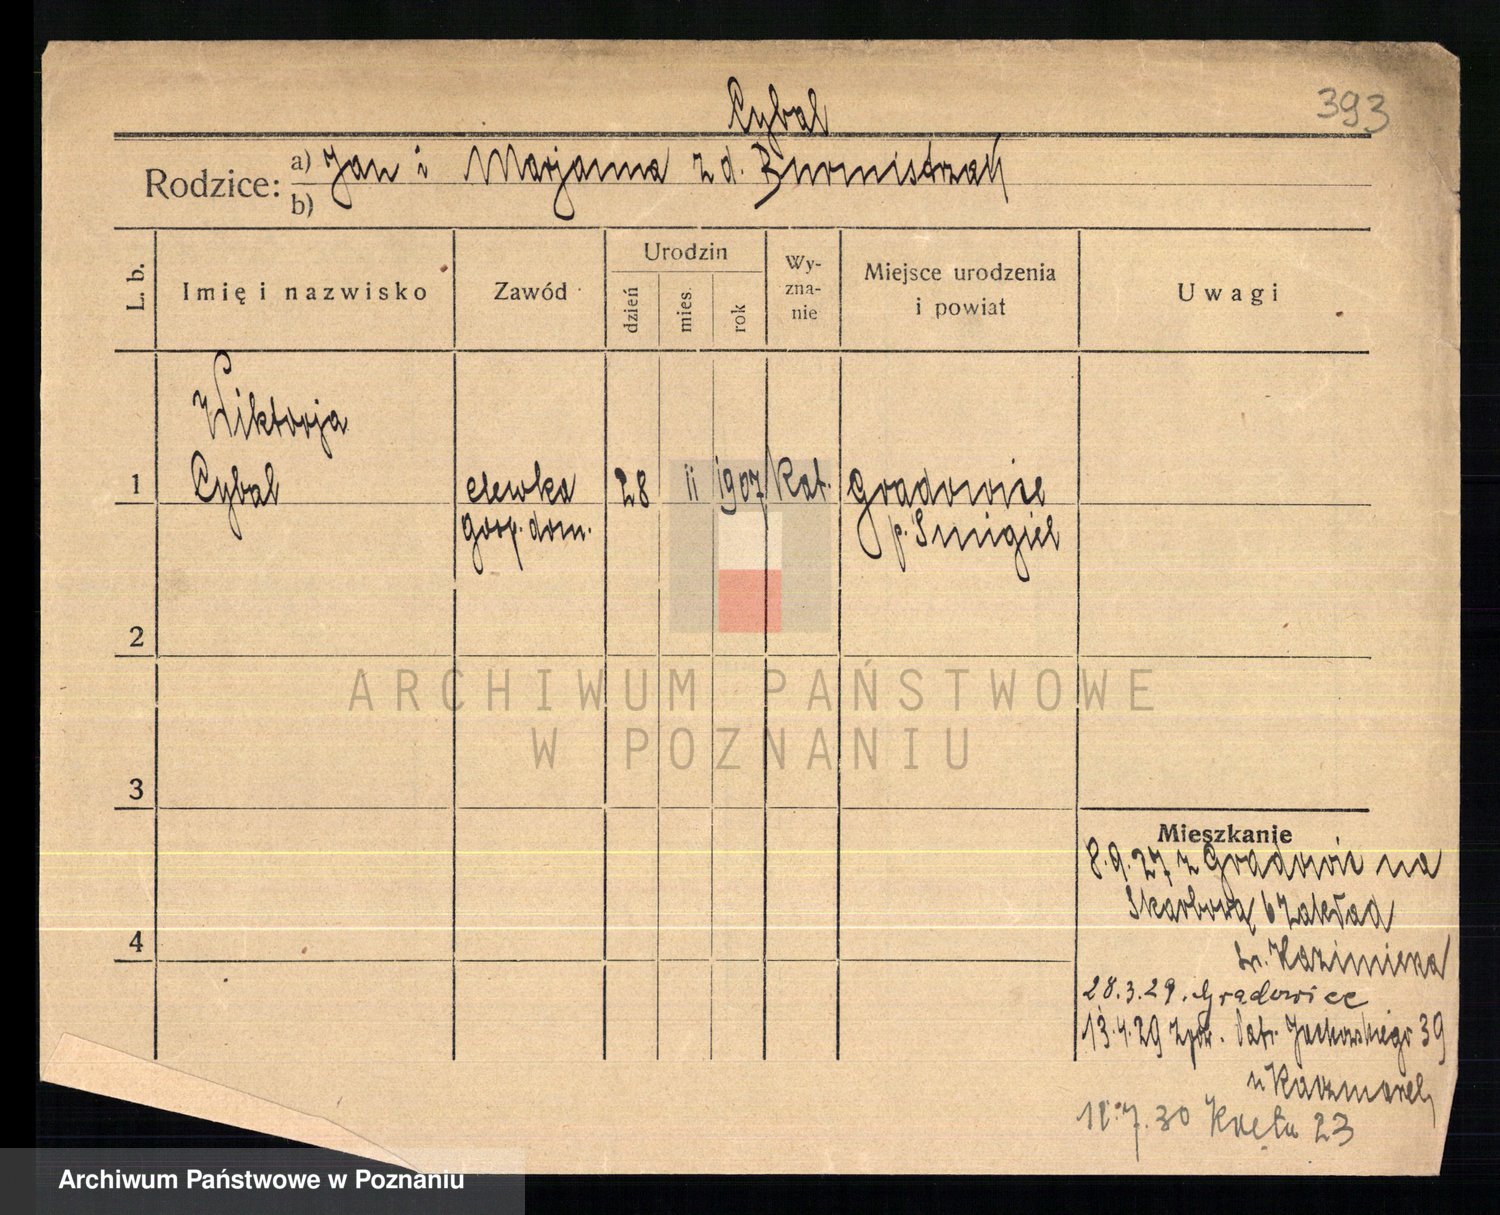 393
Cybal
Rodzice: a) Jan i Marjanna z d. Burmistrzak
b)
L. b.
Imię i nazwisko
Zawód
Urodzin
dzień
mies.
rok
Wy-
zna-
nie
Miejsce urodzenia
i powiat
Uwagi
Wiktorja
1 Cybal elewka 28 II 1907 Kat. Gradowice
gosp. dom. p. Śmigiel
2
ARCHIWUM PAŃSTWOWE
W POZNANIU
3
Mieszkanie
8.9.27 z Gradowic na
Skarbową 6 Zakład
4
św. Kazimierza
28.3.29. Gradowice
13.4.29 zpow. Jackowskiego 39
u Kaczmarek
18.7.30 Kręta 23
Archiwum Państwowe w Poznaniu